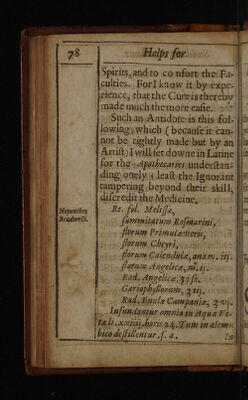 78 Helps for
Spirits, and to comfort the Fa-
culties. For I know it by expe-
rience, that the Cure is thereby
made much the more easie.
Such an Antidote is this fol-
lowing, which (because it can-
not be rightly made but by an
Artist) I will set downe in Latine
for the Apothecaries understan-
ding onely; least the Ignorant
tampering beyond their skill,
discredit the Medicine.
Nepenthes
Re. fol. Melissæ,
summitatum Rosmarini,
florum Primulæ veris,
florum Cheyri,
florum Calendulæ, ana m. iij.
florum Angelicæ, m. ij.
Rad. Angelicæ, ℥ss.
Gariophyllorum, ʒiij.
Rad. Enulæ Campaniæ, ʒvj.
Infundantur omnia in Aqua Vi-
tæ horis 24. Tum in alem-
bico destillentur. s. a.